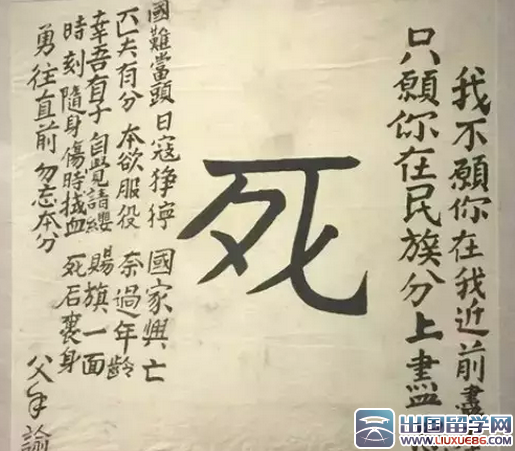 我不願你在我近前盡
只願你在民族分上盡
死
國難當頭 日寇猙獰 國家興亡
匹夫有分 本欲服役 奈過年齡
幸吾有子 自覺請纓 賜旗一面
時刻隨身 傷時拭血 死后裹身
勇往直前 勿忘本分
父手諭
出国留学网
WWW.LIUXUE86.COM